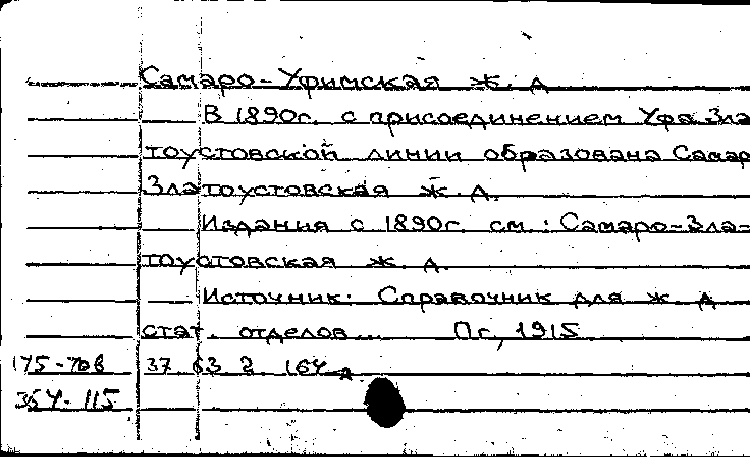 Самаро-Уфимская ж. д
В 1890г. с присоединением Уфа Зла
тоустовской линии образована Самар
Златоустовская ж. д.
Издания с 1890г. см.: Самаро-Зла-
тоустовская ж. д.
Источник: Справочник для ж д
стат. отделов... Пг, 1915
175-708 37 63 2 164
354-115